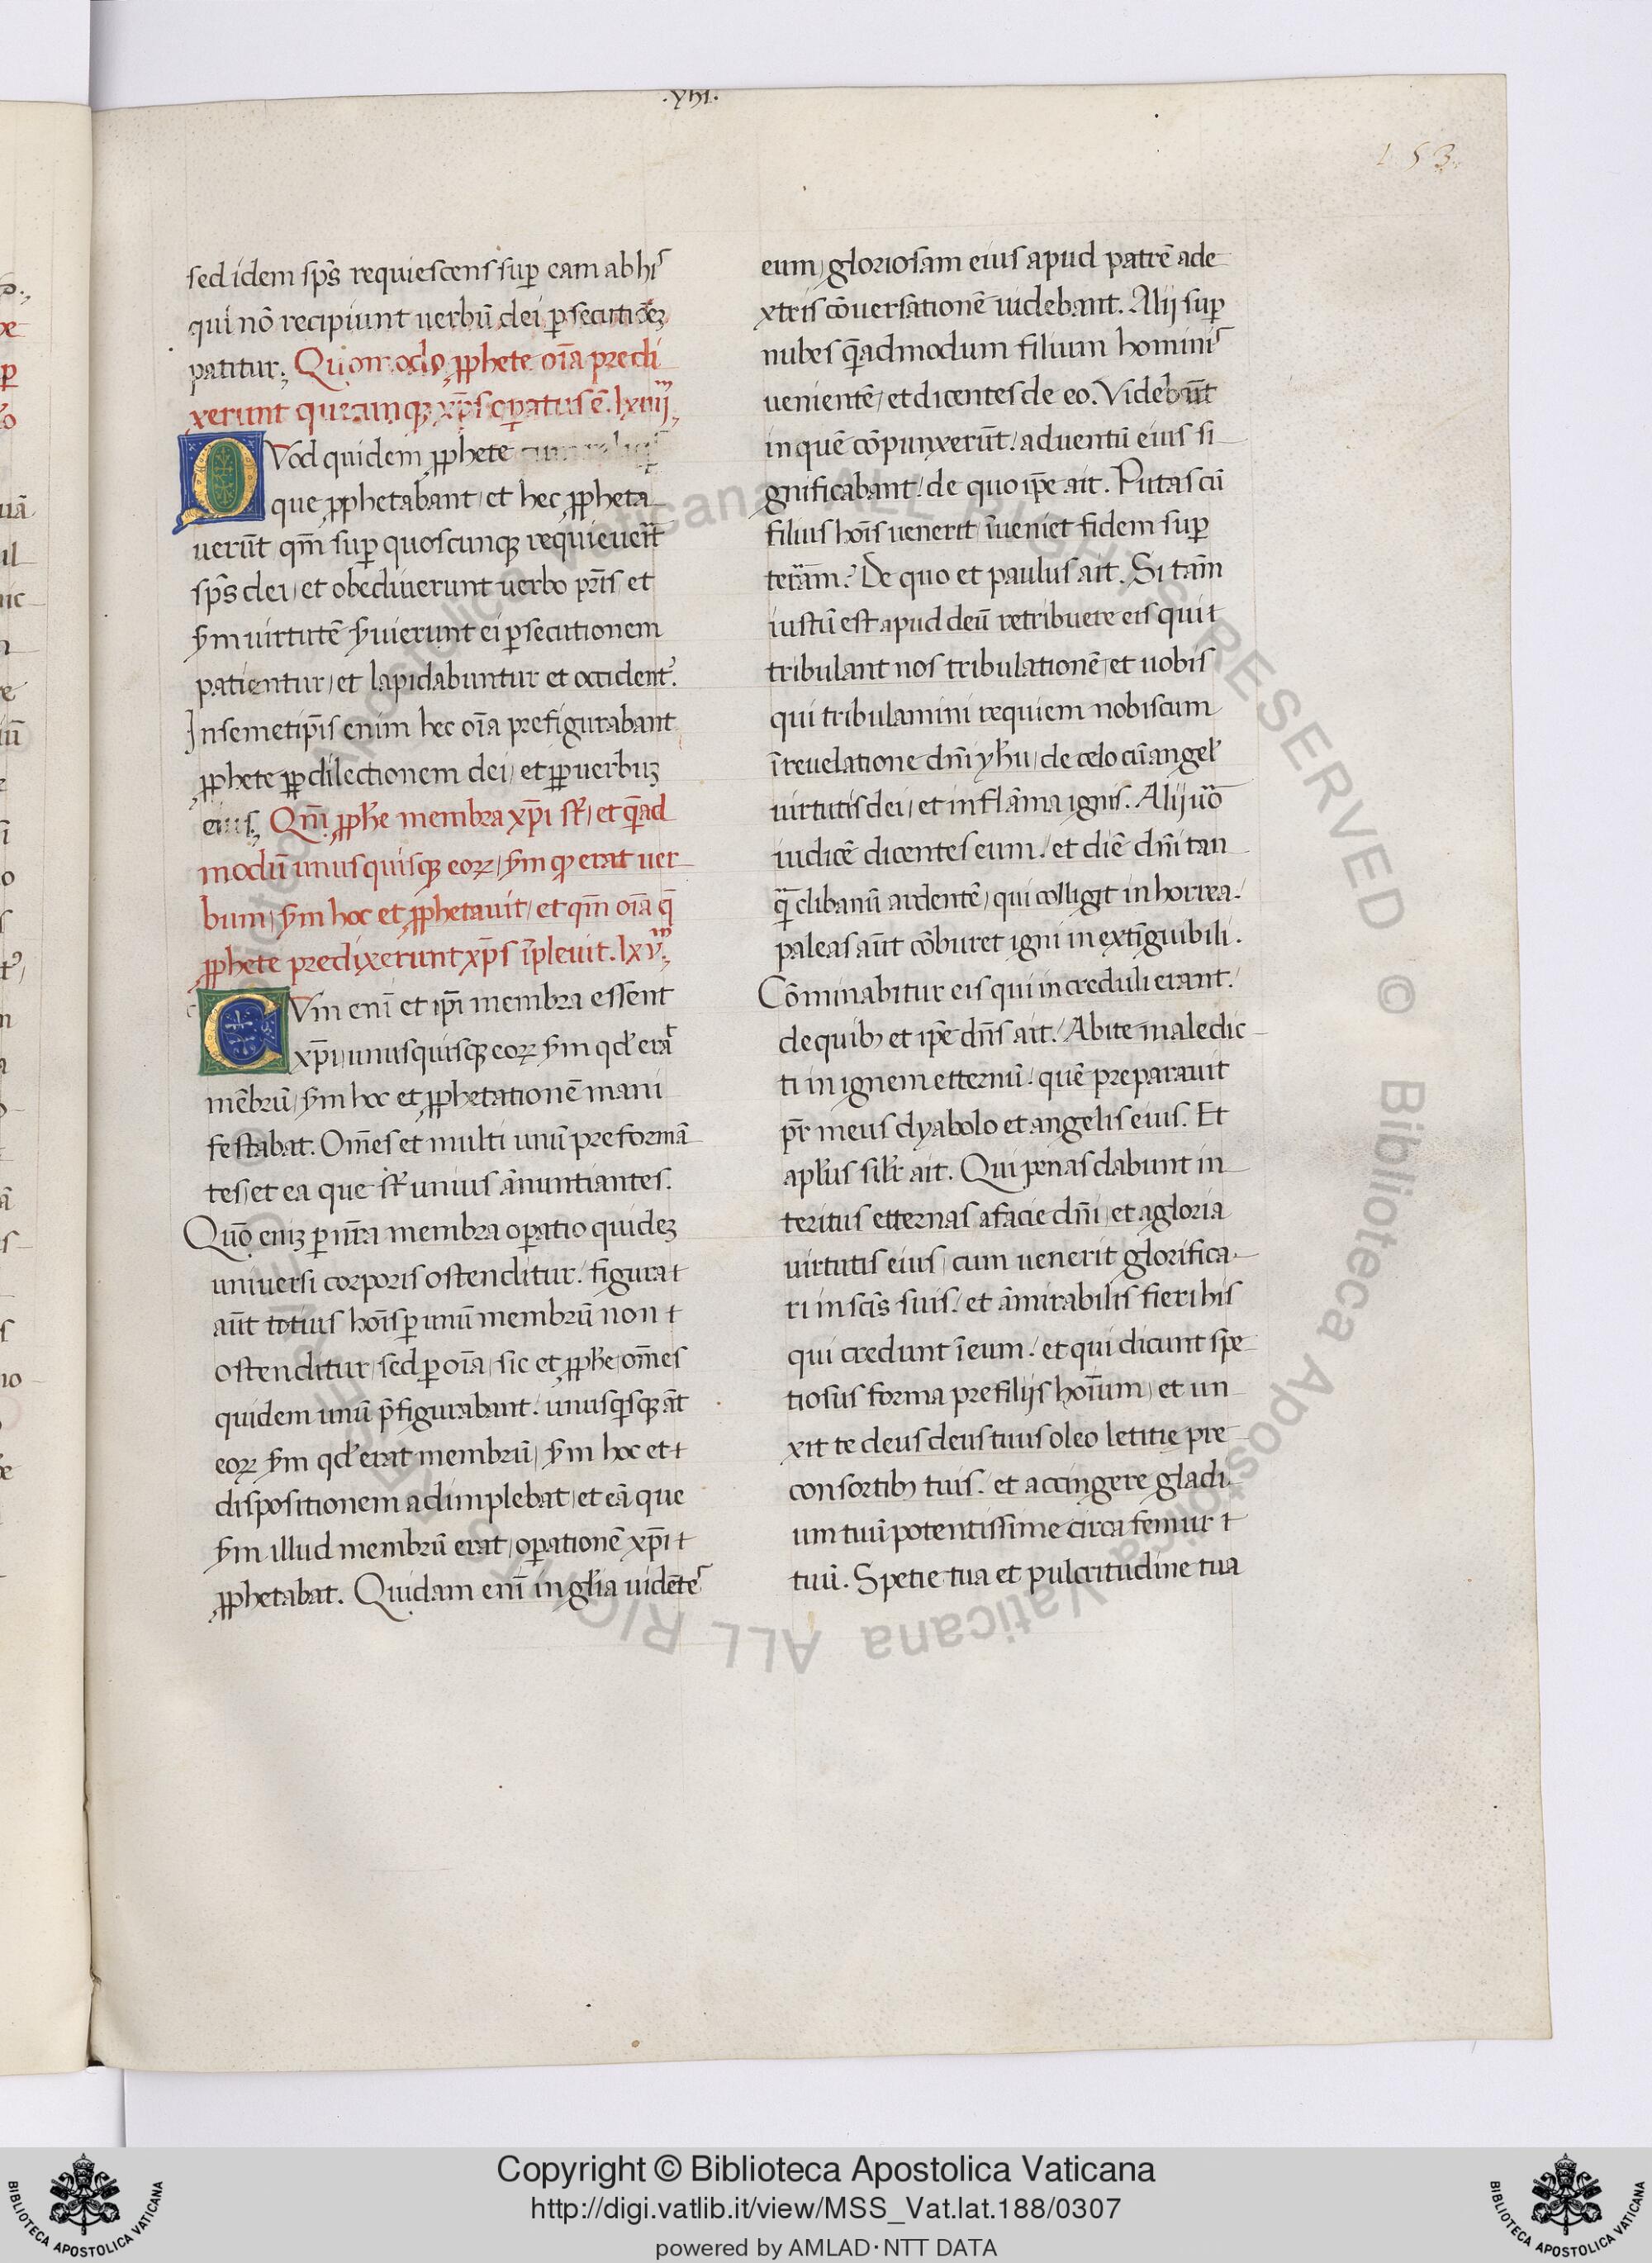 .xiii.
153.
sed idem sp̄s requiescens sup̱ eam ab his
qui nō recipiunt uerbū dei p̱secutiōeꝫ
patitur; Quomodo ꝓphete oīa predi
xerunt quecunqꝫ xp̄s op̱atus ē. lxiiii.
QVod quidem ꝓphete
que ꝓphetabant, et hec ꝓpheta
uerūt qm̄ sup̱ quoscunqꝫ requieuerīt
sp̄s dei, et obediuerunt uerbo pr̄is, et
ẜm uirtutē ẜuierunt ei p̱secutionem
patientur, et lapidabuntur et occident᷒.
Insemetip̄is enim hec oīa prefigurabant
ꝓphete ꝓp dilectionem dei, et ꝓp uerbuꝫ
eius; Qm̄ ꝓphe membra xp̄i st̄, et q̄ead
modū unusquisqꝫ eoꝝ, ẜm qꝫ erat uer
bum, ẜm hoc et ꝓphetauit, et qm̄ oīa q̄
ꝓphete predixerunt xp̄s īpleuit. lxv.
CVm enī et ip̄i membra essent
xp̄i, unusquisqꝫ eoꝝ ẜm qd' erat
mēbrū, ẜm hoc et ꝓphetationē mani
festabat. Om̄es et multi unū preformā
tes, et ea que st̄ unius ānuntiantes.
Quō eniꝫ p̱ nr̄a membra op̱atio quideꝫ
uniuersi corporis ostenditur. figura t
aūt totius hoīs p̱ unū membrū non t
ostenditur, sed p̱ oīa, sic et ꝓphe, om̄es
quidem unū p̄figurabant. unusqisqꝫ āt
eoꝝ ẜm qd' erat membrū, ẜm hoc et t
dispositionem adimplebat, et eā que
ẜm illud membrū erat, op̱ationē xp̄i t
ꝓphetabat. Quidam enī in gl'ia uidentes
eum, gloriosam eius apud patrē ade
xtris cōuersationē uidebant. Alij sup̱
nubes q̄admodum filium hominis
uenientē, et dicentes de eo. Videbūt
in quē cōpunxerūt. aduentū eius si
gnificabant. de quo ip̄e ait. Putas cū
filius hoīs uenerit, īueniet fidem sup̱
terrām? De quo et paulus ait. Si tam̄
iustū est apud deū retribuere eis qui t
tribulant nos tribulationē, et uobis
qui tribulamini requiem nobiscum
ī reuelatione dn̄i yh̄u, de celo cū angel'
uirtutis dei, et in flāma ignis. Alij uō
iudicē dicentes eum. et diē dn̄i tan
q̄ clibanū ardentē, qui colligit in horrea.
paleas aūt cōburet igni inextīguibili.
Cōminabitur eis qui increduli erant.
de quibꝫ et ip̄e dn̄s ait. Abite maledic
ti in ignem etternū. quē preparauit
pr̄ meus dyabolo et angelis eius. Et
apl'us sil'r ait. Qui penas dabunt in
teritus etternas a facie dn̄i, et a gloria
uirtutis eius, cum uenerit glorifica
ri in scīs suis. et āmirabilis fieri his
qui credunt ī eum. et qui dicunt spe
tiosus forma pre filijs hoīum, et un
xit te deus deus tuus oleo letitie pre
consortibꝫ tuis. et accingere gladi
um tuū potentissime circa femur t
tuū. Spetie tua et pulcritudine tua
Copyright © Biblioteca Apostolica Vaticana
http://digi.vatlib.it/view/MSS_Vat.lat.188/0307
powered by AMLAD·NTT DATA